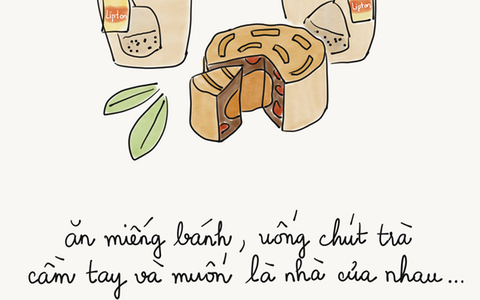 Lipton
Lipton
ăn miếng bánh, uống chút trà
cầm tay và muốn là nhà của nhau...